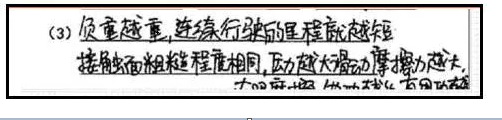 (3) 负重越重,连续行驶的里程就越短
接触面粗糙程度相同,压力越大滑动摩擦力越大.